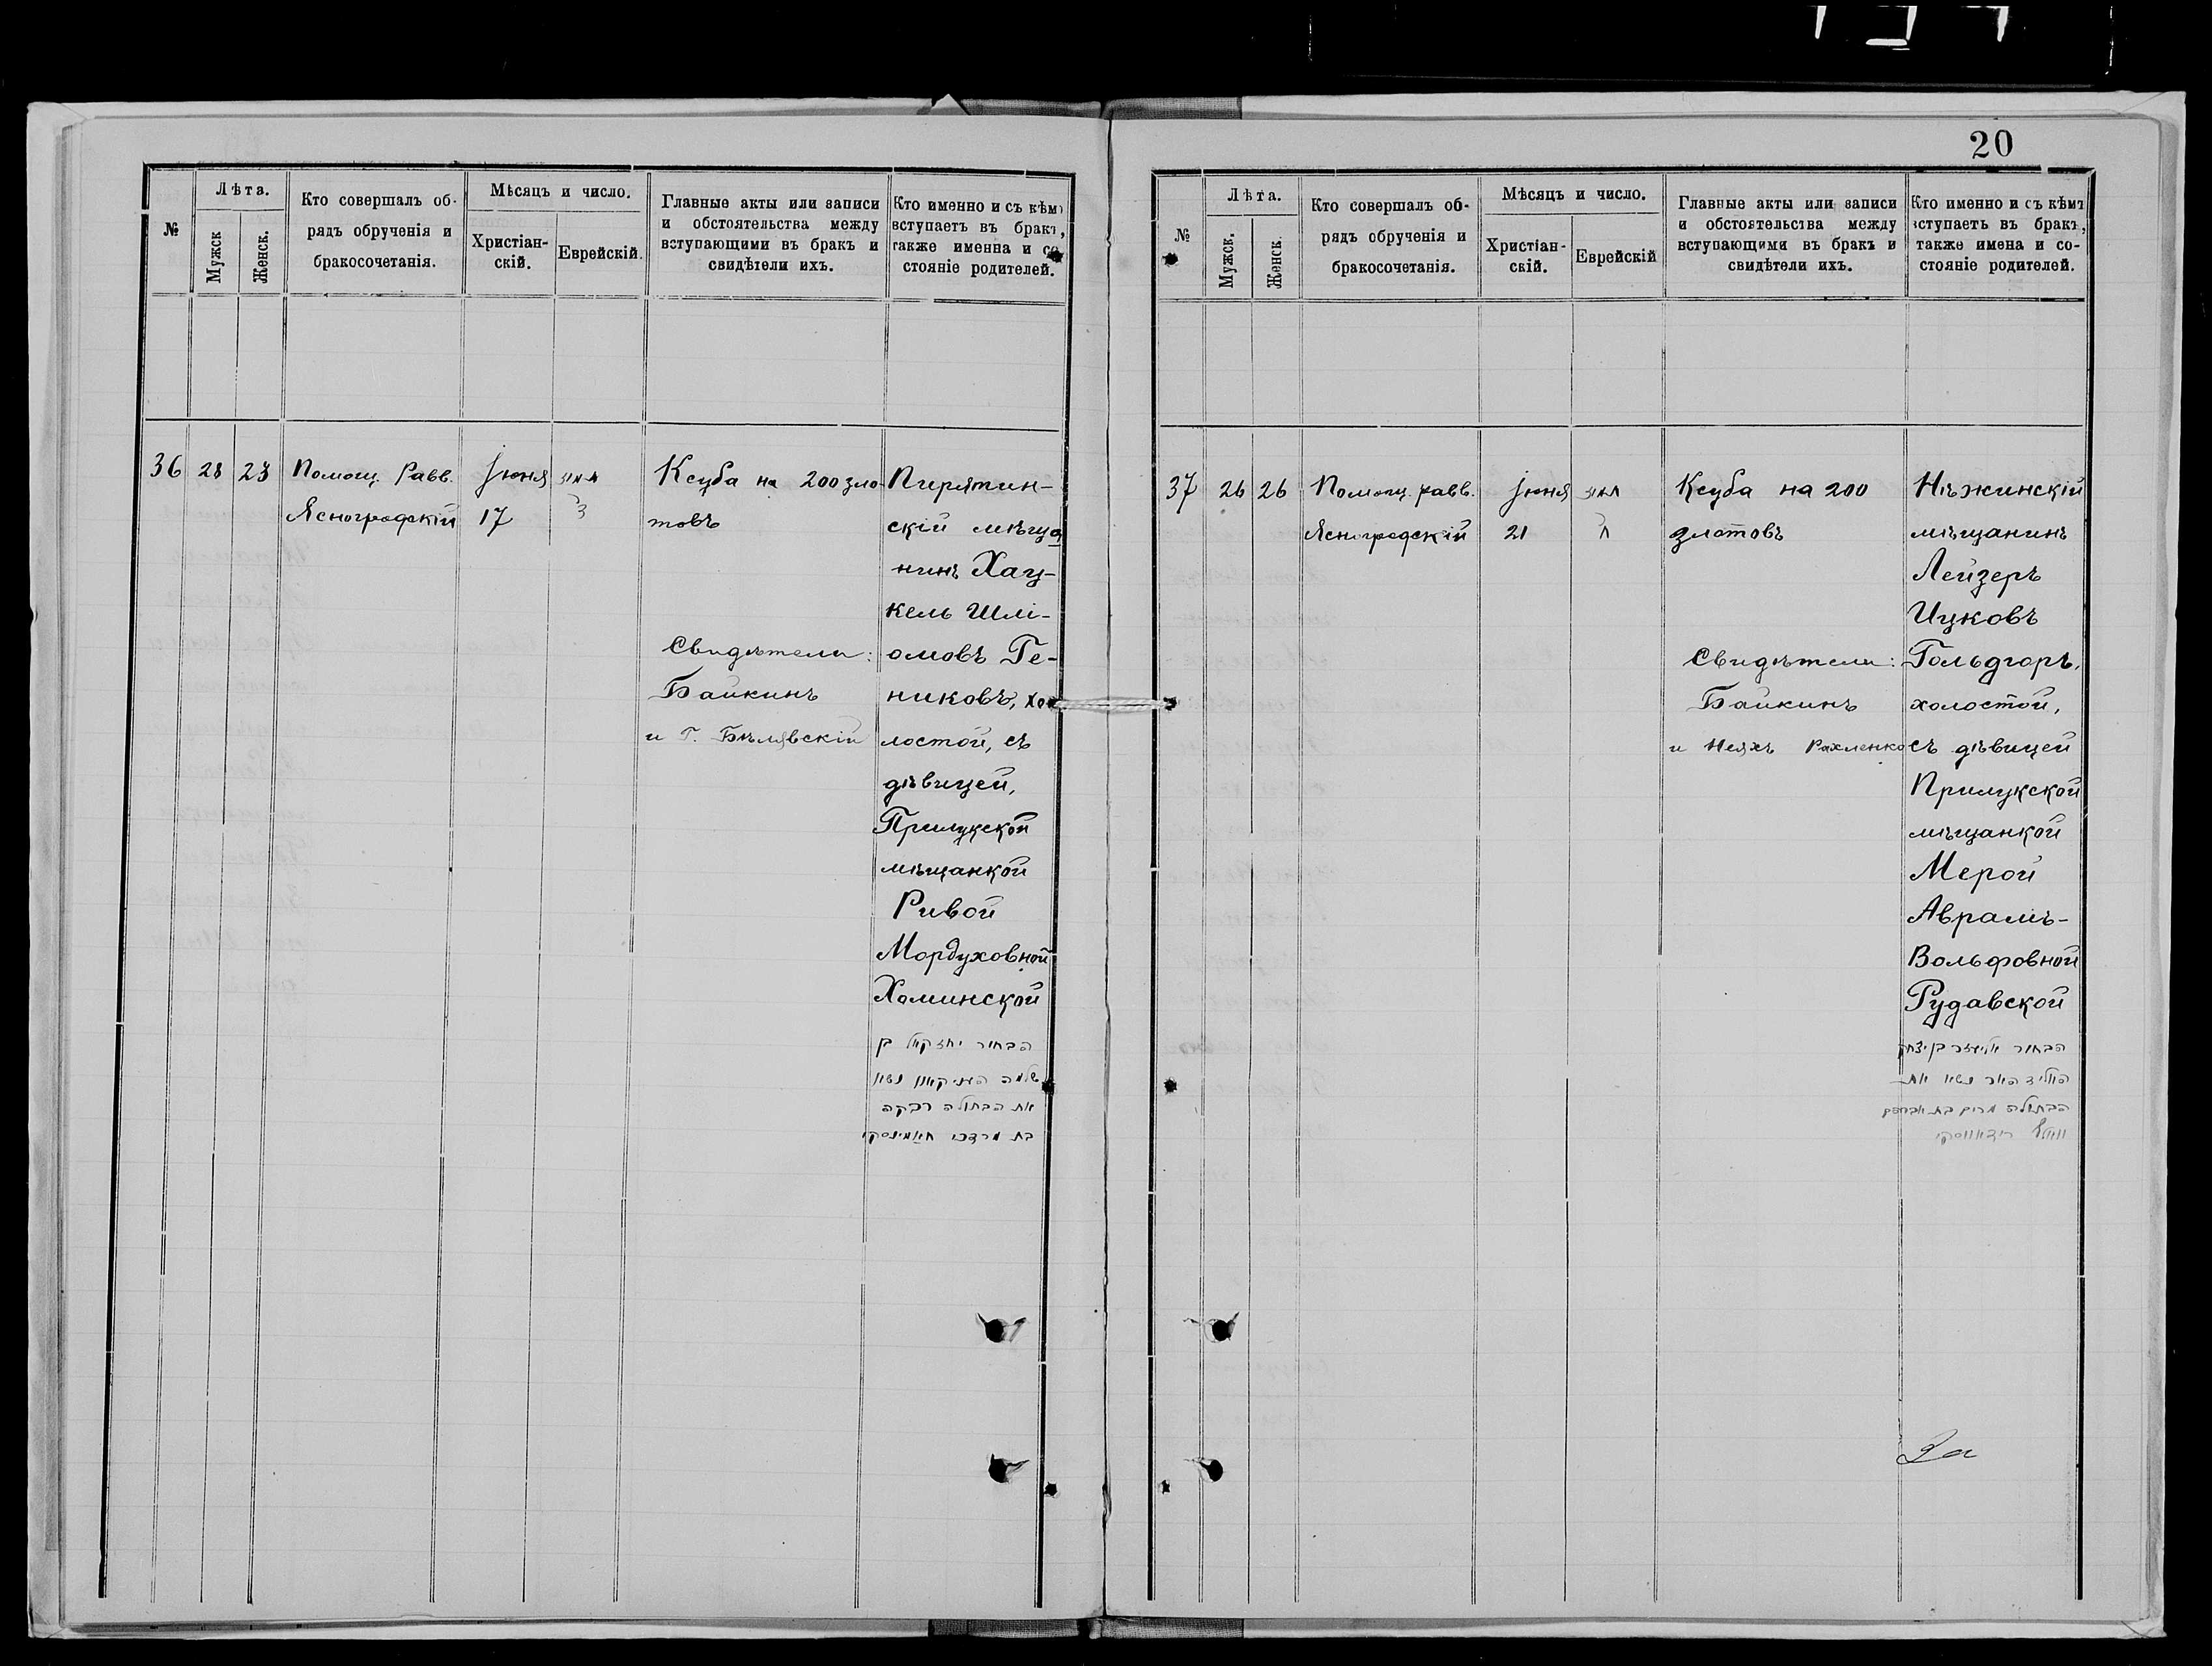 №
Лѣта.
Мужск
Женск.
Кто совершалъ об-
рядъ обрученія и
бракосочетанія.
Мѣсяцъ и число.
Христіан-
скій.
Еврейскій.
Главные акты или записи
и обстоятельства между
вступающими въ бракъ и
свидѣтели ихъ.
Кто именно и съ кѣмъ
вступаетъ въ бракъ,
также именна и со
стояніе родителей.
36 28 23
Помощ. Равв.
Ясноградскій
Іюня
17
Ксуба на 200 зло-
товъ
Свидѣтели:
Байкинъ
и Г. Бѣлявскій
Пирятин-
скій мѣща
нинъ Хац-
кель Шлі-
омовъ Ге-
никовъ, хо
лостой, съ
дѣвицей,
Прилукской
мѣщанкой
Ривой
Мордуховной
Хаминской
הבחור יחזקאל בן
שלמה העניקאוו נשא
את הבתולה רבקה
בת מרדכי חאמינסקי
20
№
Лѣта.
Мужск.
Женск.
Кто совершалъ об-
рядъ обрученія и
бракосочетанія.
Мѣсяцъ и число.
Христіан-
скій.
Еврейскій
Главные акты или записи
и обстоятельства между
вступающими въ бракъ и
свидѣтели ихъ.
Кто именно и съ кѣмъ
вступаетъ въ бракъ,
также имена и со-
стояніе родителей.
37 26 26
Помощ. равв.
Ясноградскій
Іюня
21
Ксуба на 200
злотовъ
Свидѣтели:
Байкинъ
и Неяхъ Рахленко
Нѣжинскій
мѣщанинъ
Лейзеръ
Ицковъ
Гольдгоръ,
холостой,
съ дѣвицей
Прилукской
мѣщанкой
Мерой
Аврамъ-
Вольфовной
Рудавской
הבחור אליעזר בן יצחק
נשא את
הבתולה מרים בת אברהם
וואלף רידאווסקי